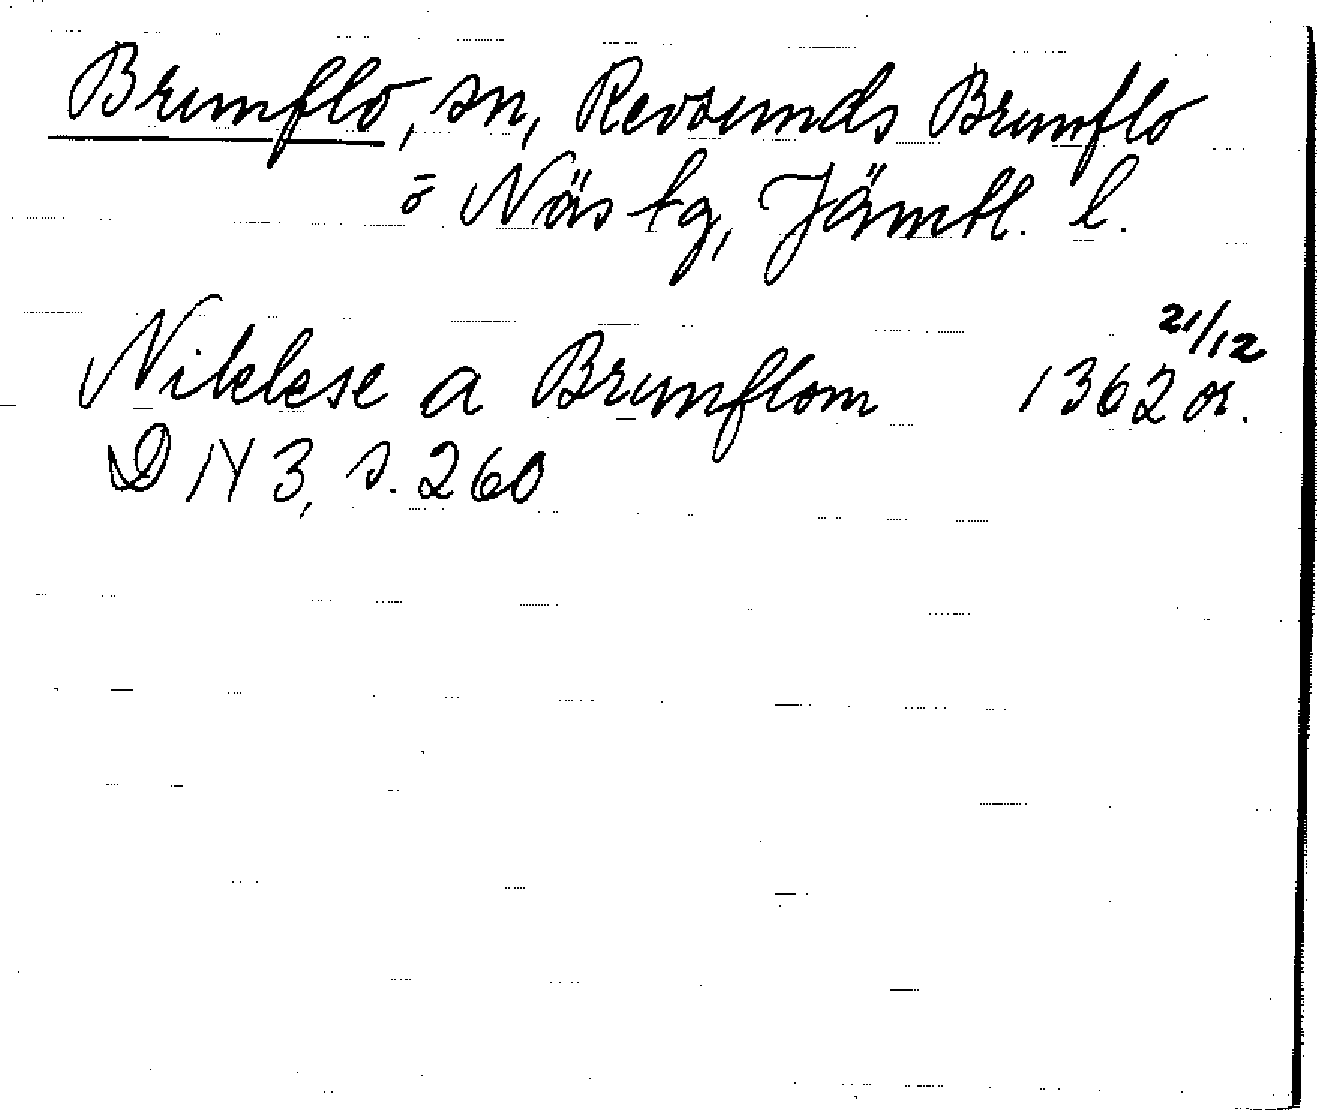 Brunflo, sn, Revsunds Brunflo
o Näs tg, Jämtl. l.
Niklese a Brunflom 1362 21/12 or.
D N 3, s. 260